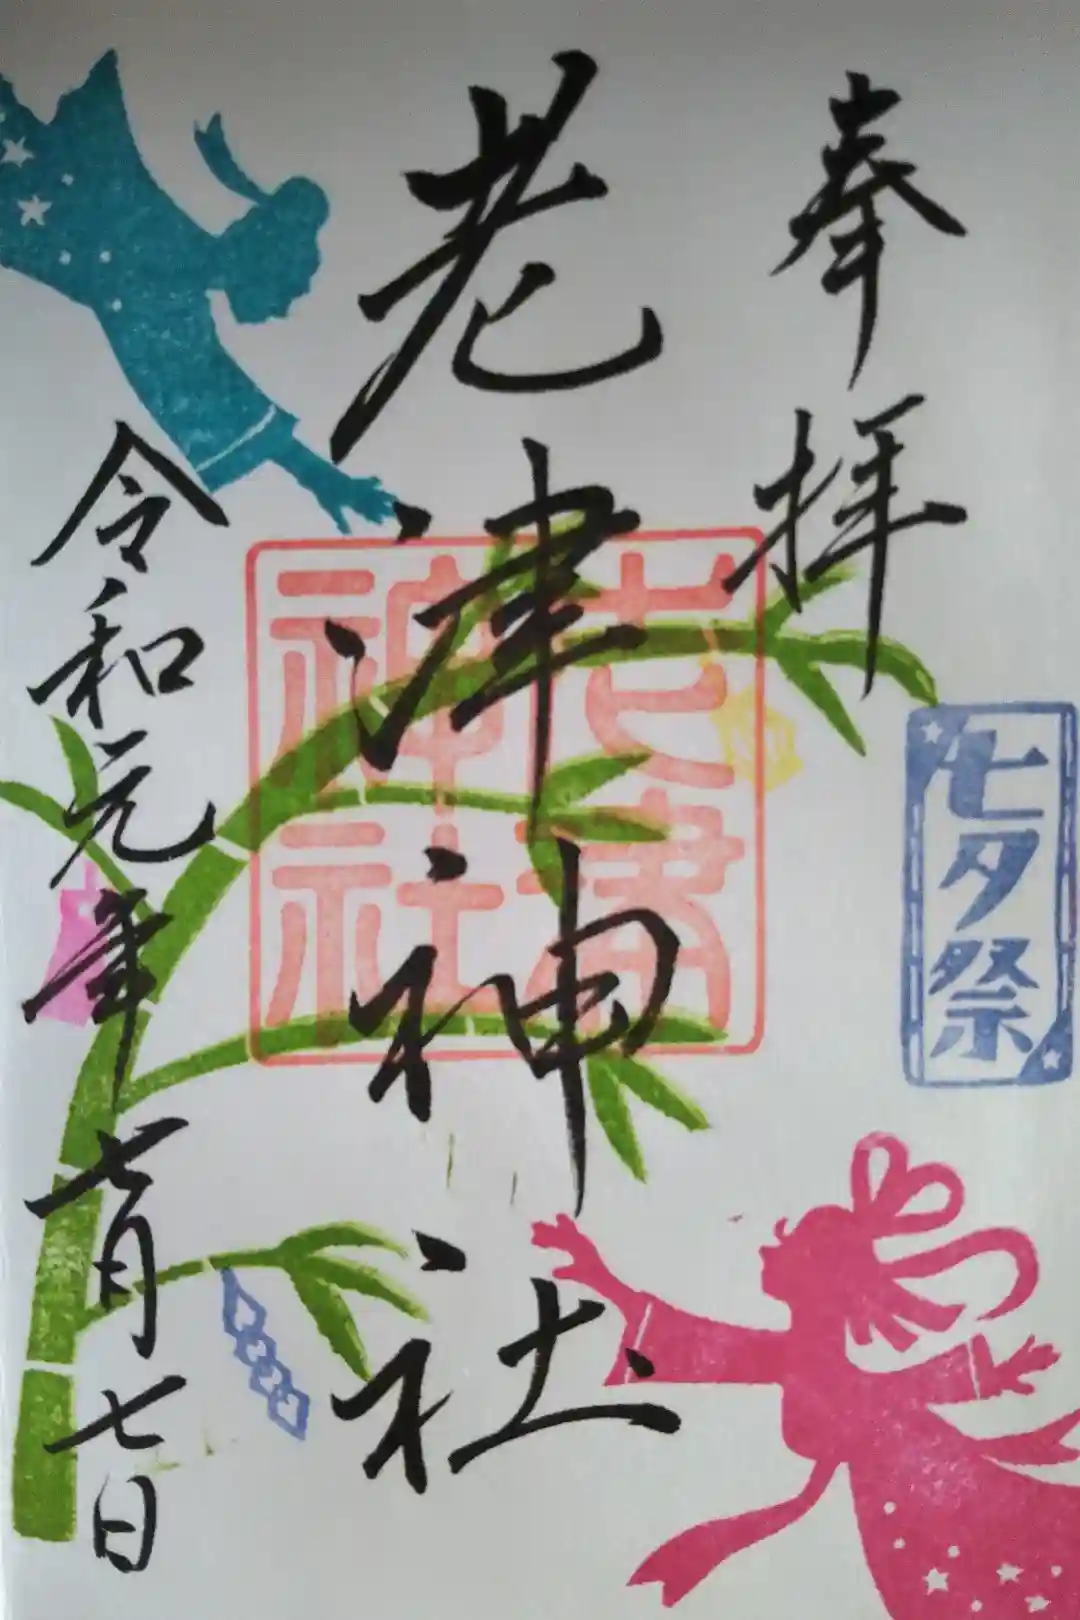 奉拝
七夕祭
老津神社
老津
神社
令和元年七月七日